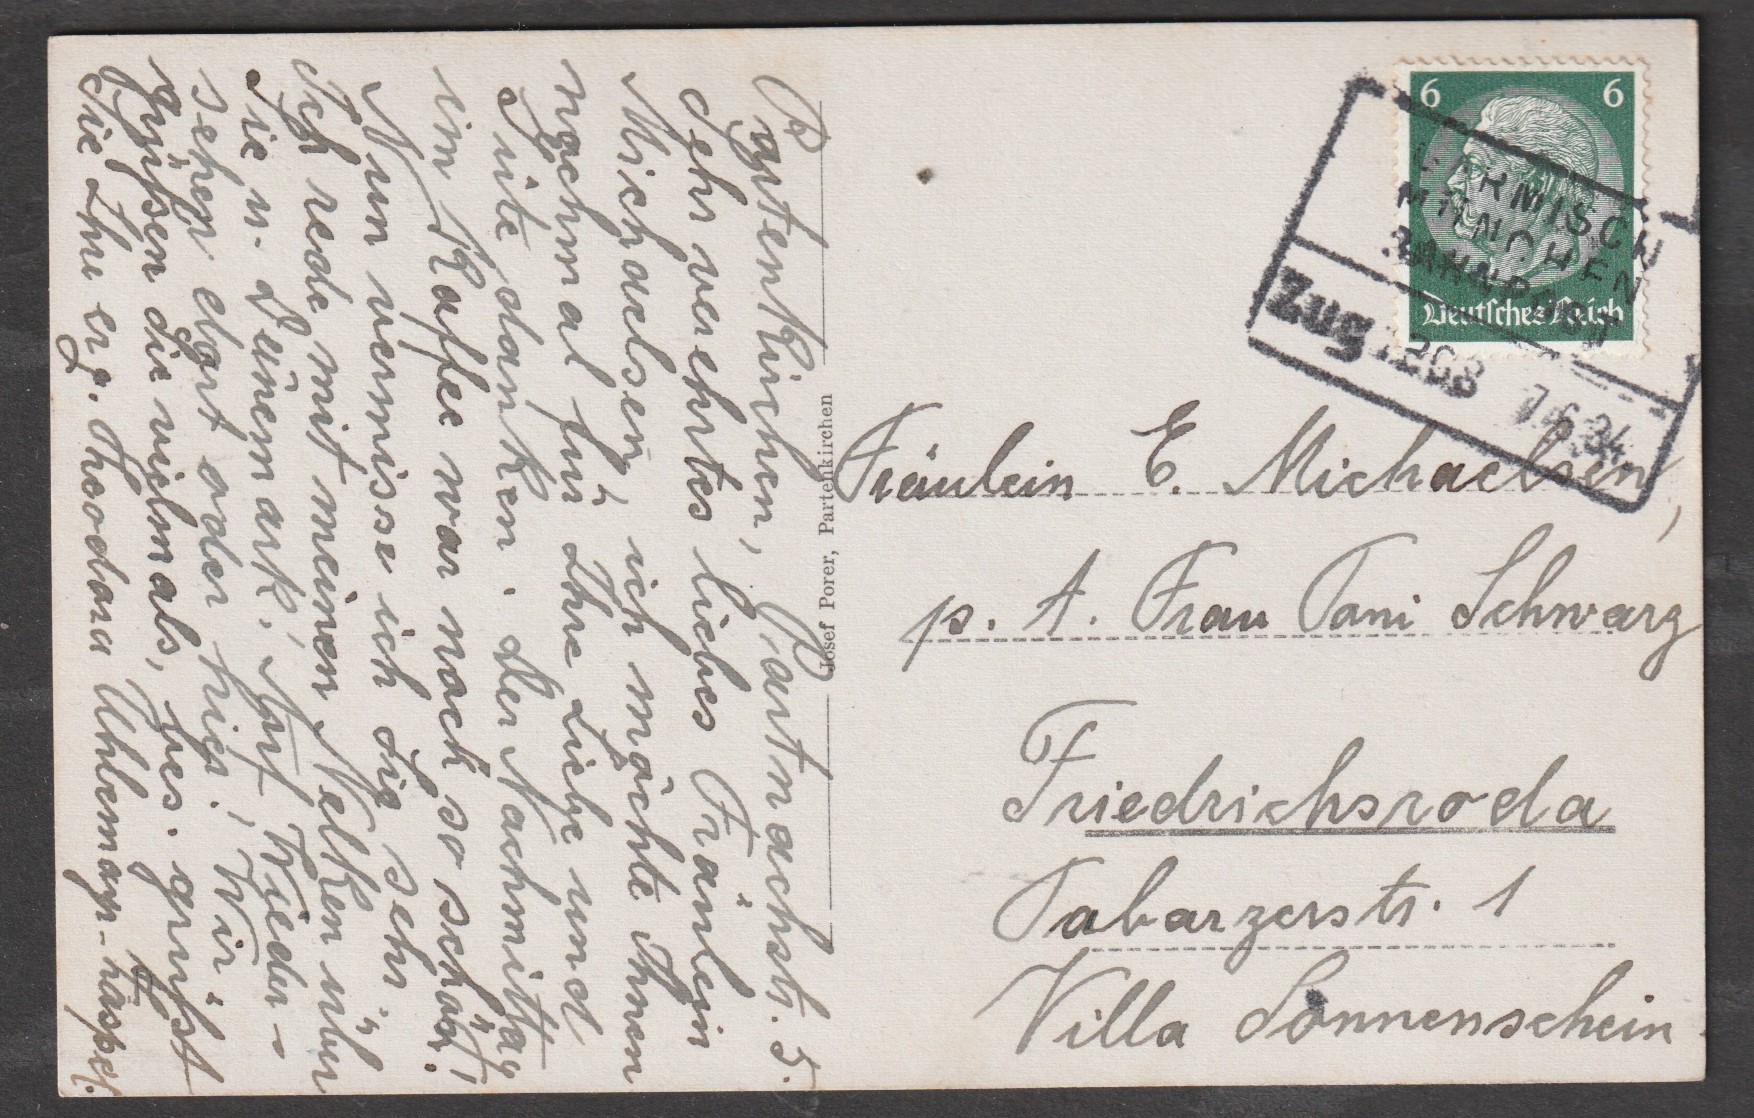 Partenkirchen, Partnachstr. 5.
Sehr verehrtes liebes Fräulein
Michaelsen, ich möchte Ihnen
nochmal für Ihre Liebe und
Güte danken. Der Nachmittag
im Kaffee war noch so schön!
Nun vermisse ich Sie sehr.
Ich rede mit meinen Nelken über
Sie u. Dänemark! Auf Wieder-
sehen dort oder hier! Wir
grüßen Sie vielmals, bes. grüßt
Sie Ihre erg. Theodora Uhlemayr-
Josef Porer, Partenkirchen
6 6
Deutsches Reich
GARMISCH
MÜNCHEN
BAHNPOST
Zug 1208 7.6.34
Fräulein E. Michaelsen,
p. A. Frau Toni Schwarz
Friedrichsroda
Tabarzerstr. 1
Villa Sonnenschein